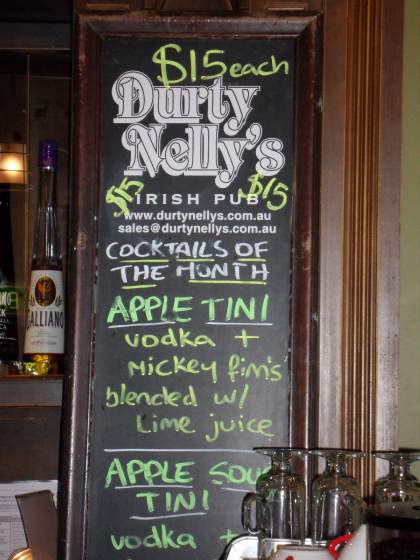 $15 each
Durty
Nelly's
$15 IRISH PUB $15
www.durtynellys.com.au
sales@durtynellys.com.au
COCKTAILS OF
THE MONTH
APPLE TINI
vodka +
Mickey fim's
blended w/
Lime juice
APPLE SOUR
TINI
vodka +
GALLIANO